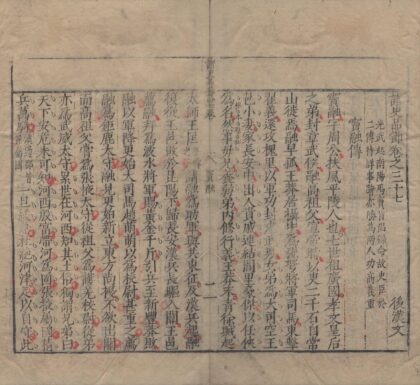 諸史品節卷之三十七
後漢文
竇融傳
竇融字周公扶風平陵人也七世祖廣國孝文皇后
之弟封章武侯融高祖父宣帝時以吏二千石自常
山徙焉融早孤王莽居攝中為強弩將軍司馬東擊
翟義還攻槐里以軍功封建武男女弟為大司空王
邑小妻家長安中出入貴戚連結閭里豪傑以任俠
為名然事母兄養弱弟內修行義王莽末青徐賊起
竇融
太師王匡請融為助軍與共東征及漢兵起融
復從王邑敗於昆陽下歸長安漢兵長驅入關王邑
薦融拜為波水將軍賜黃金千斤引兵至新豐莽敗
融以軍降更始大司馬趙萌萌以為校尉甚重之薦
融為鉅鹿太守融見更始新立東方尚擾不欲出關
而高祖父嘗為張掖太守從祖父為護羌校尉從弟
亦為武威太守累世在河西知其土俗獨謂兄弟曰
天下安危未可知河西殷富帶河為固張掖屬國精
兵萬騎一旦緩急杜絕河津足以自守此